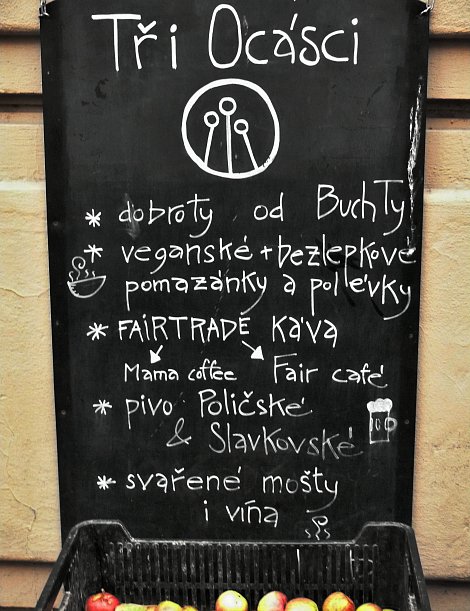 Tři Ocásci
* dobroty od BuchTy
* veganské + bezlepkové
pomazánky a pollévky
* FAIRTRADE KÁVA
Mama coffee Fair café
* pivo Poličské
& Slavkovské
* svařené mošty
i vína